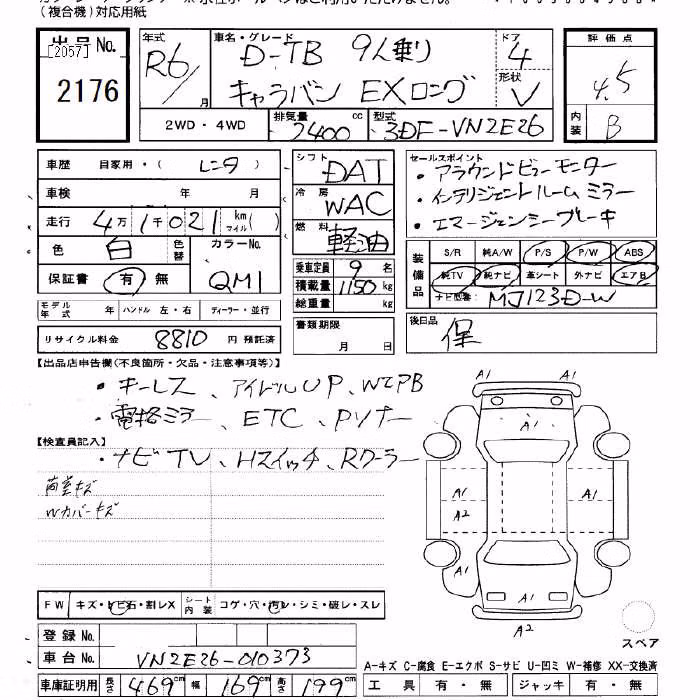 (複合機)対応用紙
出品No.
[2057]
2176
年式
R6/月
車名・グレード
D-TB 9人乗り
キャラバン EXロング
ドア
4
形状
V
評価点
4.5
内装
B
2WD・4WD
排気量
2400cc
型式
3DF-VN2E26
車歴 自家用・( レンタ )
車検 年 月
走行 4万1千021km(マイル)( )
色 白 色替
カラーNo.
QM1
保証書 有・無
モデル年式 年 ハンドル 左・右 ディーラー・並行
リサイクル料金 8810 円 預託済
シフト DAT
冷房 WAC
燃料 軽油
乗車定員 9 名
積載量 1150 kg
総重量 kg
書類期限
月 日
セールスポイント
・アラウンドビューモニター
・インテリジェントルームミラー
・エマージェンシーブレーキ
装備品
S/R 純A/W P/S P/W ABS
純TV 純ナビ 革シート 外ナビ エアB
ナビ型番: MJ123D-W
後日品
保
【出品店申告欄(不良箇所・欠品・注意事項等)】
・キーレス、アイドルUP、WエアB
・電格ミラー、ETC、Pソナー
【検査員記入】
・ナビTV、Hスイッチ、Rクーラー
荷室キズ
Wカバーキズ
FW キズ・ヒビ・石・割レX
シート内装 コゲ・穴・汚レ・シミ・破レ・スレ
登録No.
車台No. VN2E26-010373
車庫証明用 長さ 469cm 幅 169cm 高さ 199cm
A1 A1
A1
A1 A1
A2
A1 A1
A2
スペア
A-キズ C-腐食 E-エクボ S-サビ U-凹ミ W-補修 XX-交換済
工具 有・無 ジャッキ 有・無